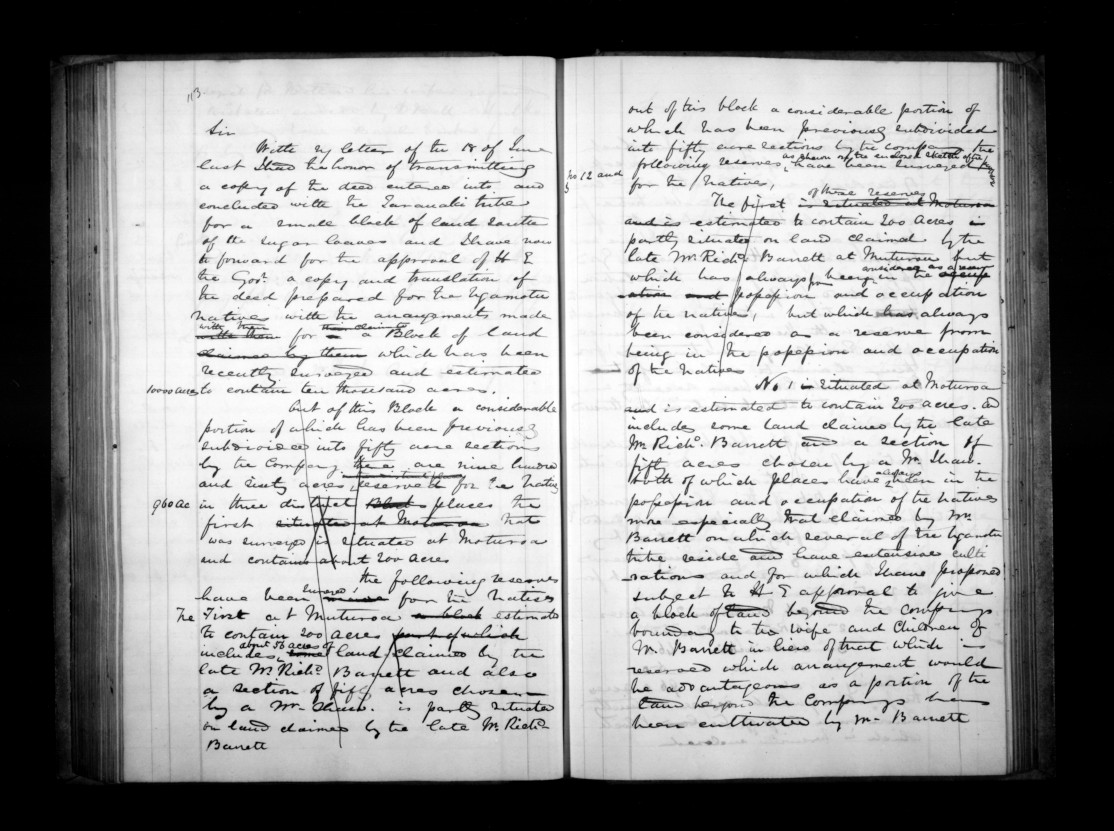 113
Sir
With my letter of the 18 of June
last I had the honor of transmitting
a copy of the deed entered into and
concluded with the Taranaki tribe
for a small block of land South
of the Sugar loaves and I have now
to forward for the approval of H E
the Govr. a copy and translation of
the deed prepared for the Ngamotu
natives with the arrangements made
with them
with them for a their claim to a Block of land
claimed by them which has been
recently surveyed and estimated
10000 acres to contain ten thousand acres.
Out of this Block a considerable
portion of which has been previously
subdivided into fifty acre sections
by the Company there are nine hundred
and sixty acres reserved for the natives
960 ac in three distinct places the
first situated at Moturoa that
was surveyed is situated at Moturoa
and contains about 200 acres
the following reserves
have been surveyed for the natives
The First at Muturoa a block estimated
to contain 200 acres part of which
about 56 acres of
includes some land claimed by the
late Mr. Richd. Barrett and also
a section of fifty acres chosen
by a Mr Shaw. is partly situated
on land claimed by the late Mr. Richd.
Barrett
out of this block a considerable portion of
which has been previously subdivided
into fifty acre sections by the Company the
as shewn on the enclosed sketch of the
following reserves, have been surveyed
no 12 and
for the Natives,
of these reserves
The first is situated at Moturoa
and is estimated to contain 200 Acres is
partly situated on land claimed by the
late Mr. Richd. Barrett at Muturoa but
considered as a reserve
which has always been in the occup
ation and possession and occupation
of the natives, but which has always
been considered as a reserve from
being in the possession and occupation
of the natives
No 1 is situated at Moturoa
and is estimated to contain 200 acres. and
includes some land claimed by the late
Mr. Richd. Barrett and a section of
fifty acres chosen by a Mr. Shaw.
always
both of which places have been in the
possession and occupation of the natives
more especially that claimed by Mr.
Barrett on which several of the Ngamotu
tribe reside and have extensive culti
vations and for which I have proposed
subject to H E approval to give
a block of land beyond the Companys
boundary to the wife and Children of
Mr. Barrett in lieu of that which is
reserved which arrangement would
be advantageous as a portion of the
land beyond the Companys has
been cultivated by Mr Barrett